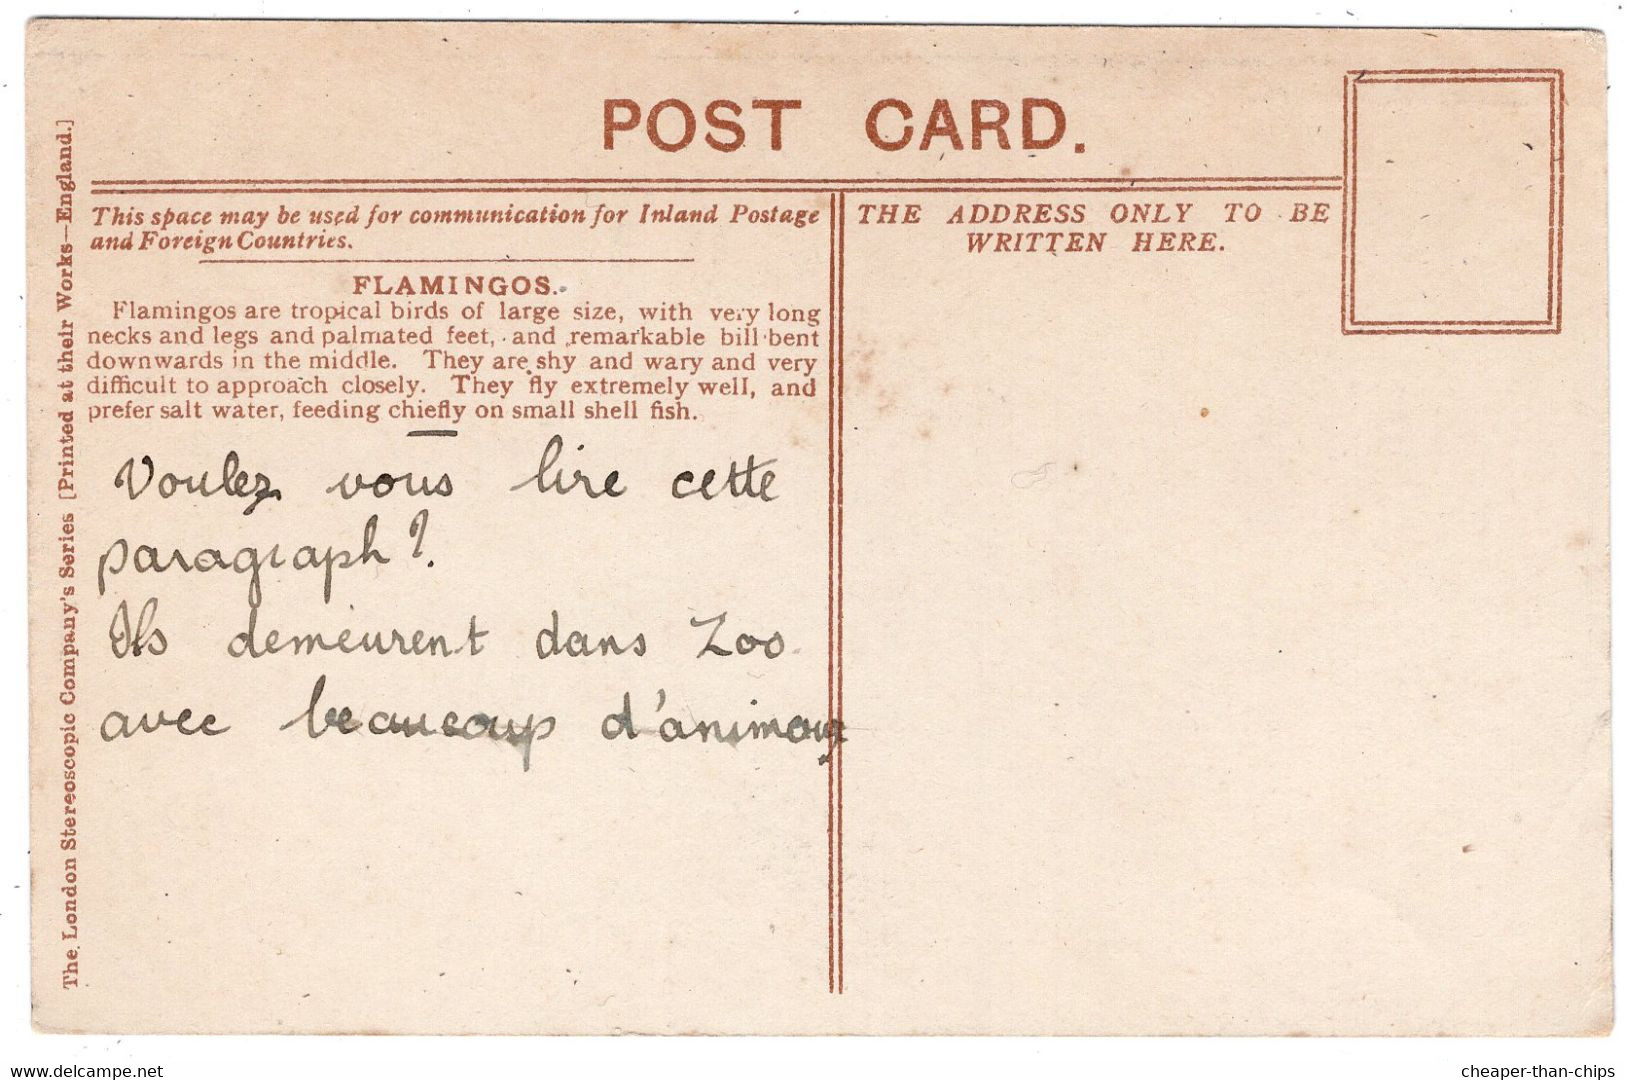 POST CARD.
This space may be used for communication for Inland Postage
and Foreign Countries.
THE ADDRESS ONLY TO BE
WRITTEN HERE.
FLAMINGOS.
Flamingos are tropical birds of large size, with very long
necks and legs and palmated feet, and remarkable bill bent
downwards in the middle. They are shy and wary and very
difficult to approach closely. They fly extremely well, and
prefer salt water, feeding chiefly on small shell fish.
Voulez vous lire cette
paragraph?
Ils demeurent dans Zoo
avec beaucoup d'animaux
The London Stereoscopic Company's Series [Printed at their Works—England.]
cheaper-than-chips
www.delcampe.net